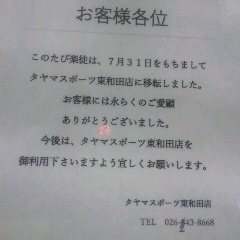 お客様各位
このたび楽徒は、７月３１日をもちまして
タヤマスポーツ東和田店に移転しました。
お客様には永らくのご愛顧
ありがとうございました。
今後は、タヤマスポーツ東和田店を
御利用下さいますよう宜しくお願いします。
タヤマスポーツ東和田店
TEL 026-243-8668